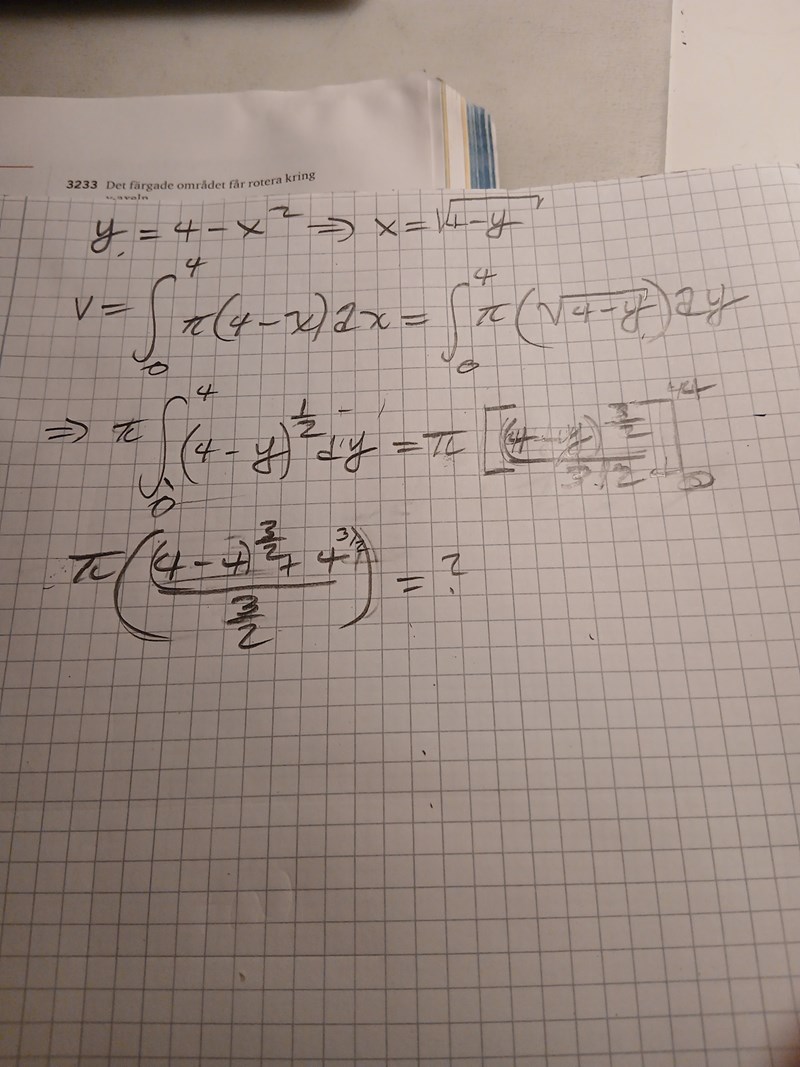 3233 Det färgade området får rotera kring
y = 4 - x² ⇒ x = √(4-y)
V = ∫₀⁴ π(4-x)dx = ∫₀⁴ π(√(4-y))dy
⇒ π ∫₀⁴ (4-y)^(1/2) dy = π [(4-y)^(3/2) / 3/2]₀⁴
π((4-4)^(3/2) + 4^(3/2) / (3/2)) = ?